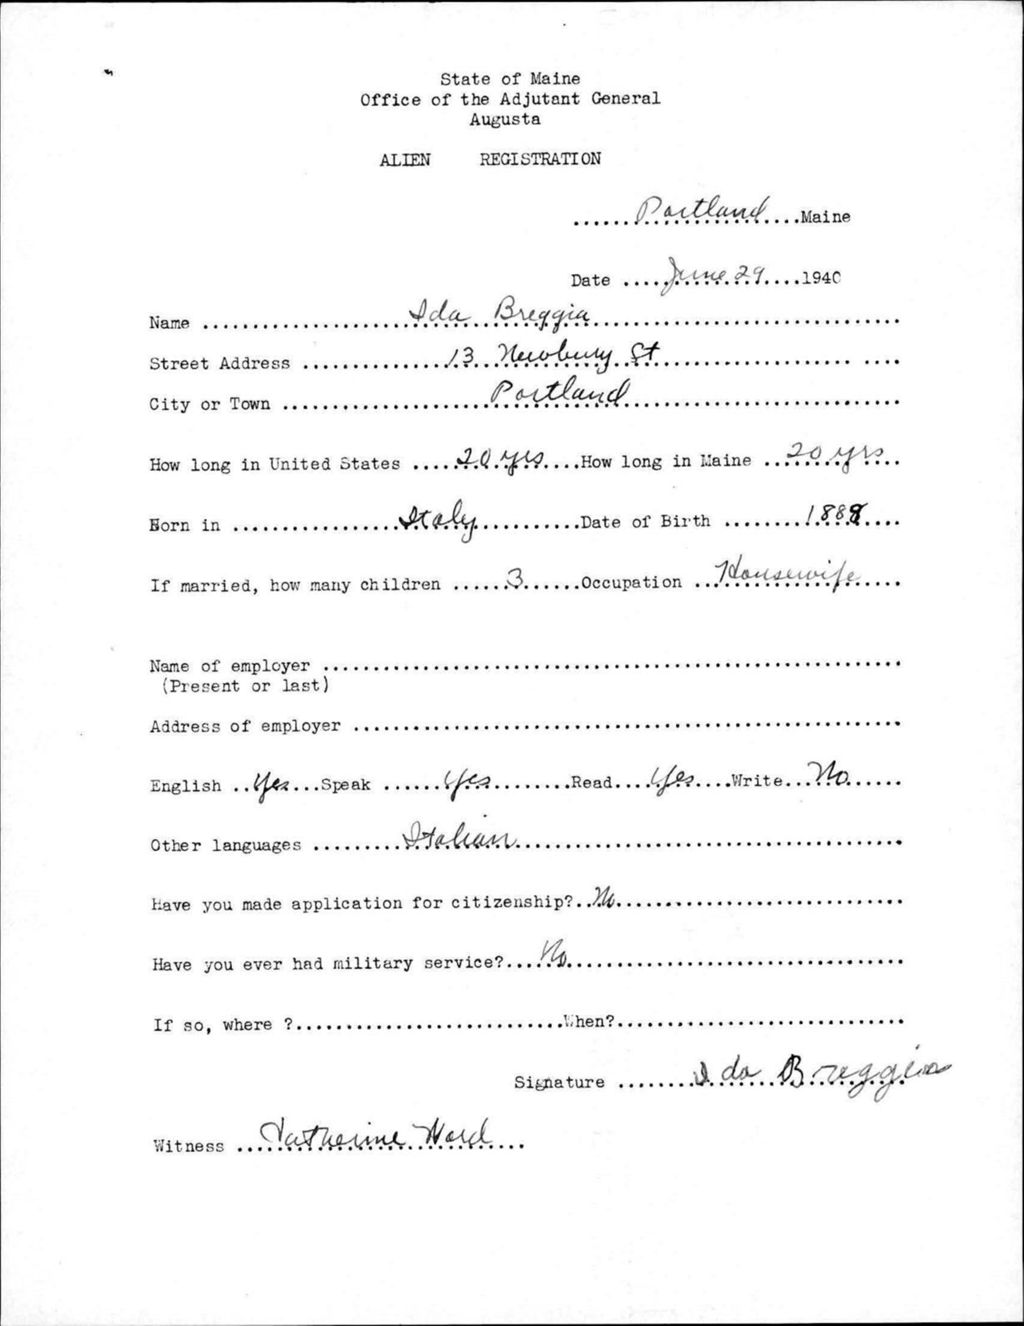 State of Maine
Office of the Adjutant General
Augusta
ALIEN REGISTRATION
......Portland....Maine
Date ....June 29....1940
Name ....Ida Breggia....
Street Address ....13 Newbury St....
City or Town ....Portland....
How long in United States ....20 yrs....How long in Maine ....20 yrs....
Born in ....Italy....Date of Birth ....1888....
If married, how many children ....3....Occupation ....Housewife....
Name of employer ....
(Present or last)
Address of employer ....
English ..Yes...Speak ....Yes....Read....Yes....Write...No....
Other languages ....Italian....
Have you made application for citizenship?..No....
Have you ever had military service?....No....
If so, where ?....When?....
Signature ....Ida Breggia
Witness ...Katherine Ward....